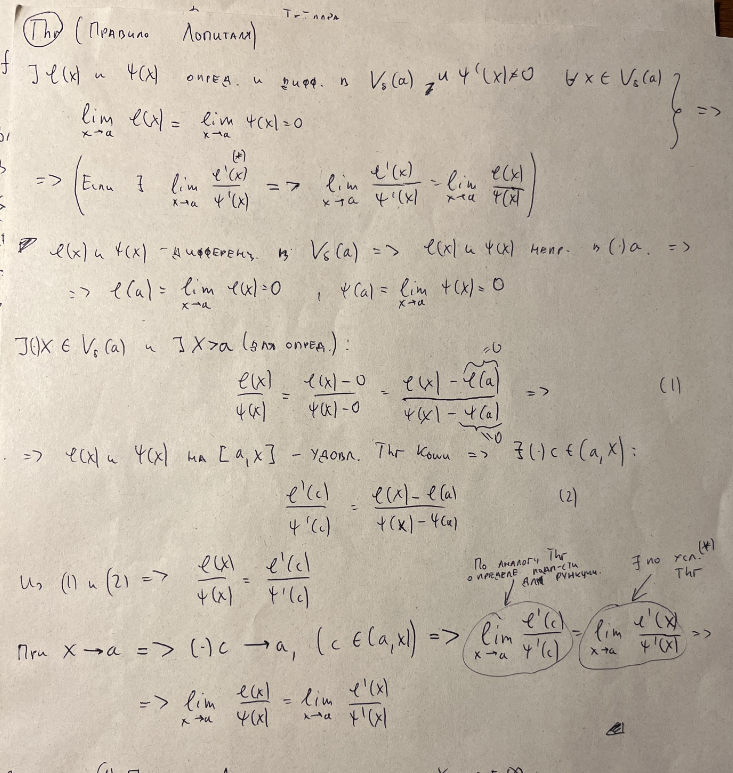 Thr (Правило Лопиталя)
] φ(x) и ψ(x) опред. и дифф. в V_δ(a), и ψ'(x)≠0 ∀ x ∈ V_δ(a) } =>
lim_{x→a} φ(x) = lim_{x→a} ψ(x) = 0
=> (Если ∃ lim_{x→a} φ'(x)/ψ'(x) (*) => lim_{x→a} φ'(x)/ψ'(x) = lim_{x→a} φ(x)/ψ(x))
φ(x) и ψ(x) - дифференц. в V_δ(a) => φ(x) и ψ(x) непр. в (·) a. =>
=> φ(a) = lim_{x→a} φ(x) = 0 , ψ(a) = lim_{x→a} ψ(x) = 0
] (·) x ∈ V_δ(a) и ] x > a (для опред.) :
φ(x)/ψ(x) = (φ(x) - 0)/(ψ(x) - 0) = (φ(x) - φ(a))/(ψ(x) - ψ(a)) => (1)
=0
=0
=> φ(x) и ψ(x) на [a, x] - удовл. Thr Коши => ∃ (·) c ∈ (a, x) :
φ'(c)/ψ'(c) = (φ(x) - φ(a))/(ψ(x) - ψ(a)) (2)
Из (1) и (2) => φ(x)/ψ(x) = φ'(c)/ψ'(c)
По аналогу Thr
о пределе
для функции.
∃ по усл. (*)
Thr
При x → a => (·) c → a, (c ∈ (a, x)) => lim_{x→a} φ'(c)/ψ'(c) = lim_{x→a} φ'(x)/ψ'(x) =>
=> lim_{x→a} φ(x)/ψ(x) = lim_{x→a} φ'(x)/ψ'(x)